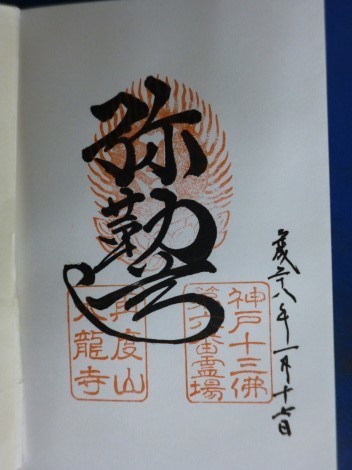 平成二八年一月十七日
弥勒
神戸十三佛
第六番霊場
再度山
大龍寺